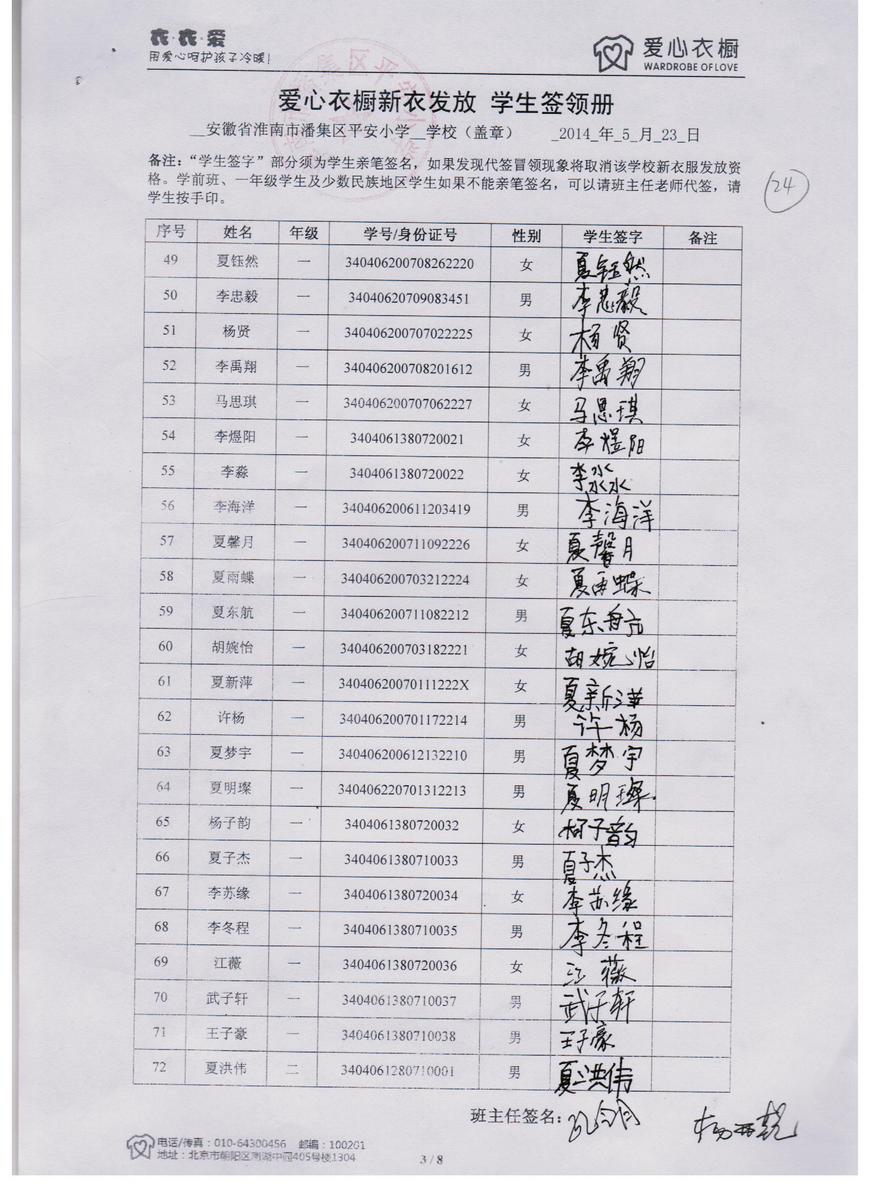 衣·衣·爱
用爱心呵护孩子冷暖!
爱心衣橱
WARDROBE OF LOVE
爱心衣橱新衣发放 学生签领册
__安徽省淮南市潘集区平安小学__学校（盖章） _2014_年_5_月_23_日
备注：“学生签字”部分须为学生亲笔签名，如果发现代签冒领现象将取消该学校新衣服发放资
格。学前班、一年级学生及少数民族地区学生如果不能亲笔签名，可以请班主任老师代签，请
学生按手印。
24
序号 姓名 年级 学号/身份证号 性别 学生签字 备注
49 夏钰然 一 340406200708262220 女 夏钰然
50 李忠毅 一 34040620709083451 男 李忠毅
51 杨贤 一 340406200707022225 女 杨贤
52 李禹翔 一 340406200708201612 男 李禹翔
53 马思琪 一 340406200707062227 女 马思琪
54 李煜阳 一 3404061380720021 女 李煜阳
55 李淼 一 3404061380720022 女 李淼
56 李海洋 一 340406200611203419 男 李海洋
57 夏馨月 一 340406200711092226 女 夏馨月
58 夏雨蝶 一 340406200703212224 女 夏雨蝶
59 夏东航 一 340406200711082212 男 夏东航
60 胡婉怡 一 340406200703182221 女 胡婉怡
61 夏新萍 一 34040620070111222X 女 夏新萍
62 许杨 一 340406200701172214 男 许杨
63 夏梦宇 一 340406200612132210 男 夏梦宇
64 夏明璨 一 340406220701312213 男 夏明璨
65 杨子韵 一 3404061380720032 女 杨子韵
66 夏子杰 一 3404061380710033 男 夏子杰
67 李苏缘 一 3404061380720034 女 李苏缘
68 李冬程 一 3404061380710035 男 李冬程
69 江薇 一 3404061380720036 女 江薇
70 武子轩 一 3404061380710037 男 武子轩
71 王子豪 一 3404061380710038 男 王子豪
72 夏洪伟 二 3404061280710001 男 夏洪伟
班主任签名：
电话/传真：010-64300456 邮编：100201
地址：北京市朝阳区南湖中园405号楼1304
3 / 8